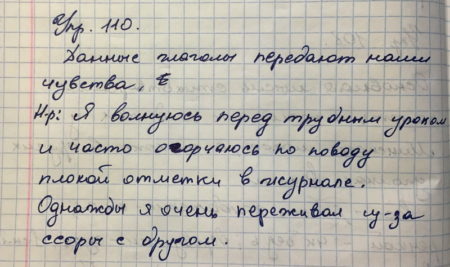 Упр. 110.
Данные глаголы передают наши
чувства.
Нр: Я волнуюсь перед трудным уроком
и часто огорчаюсь по поводу
плохой отметки в журнале.
Однажды я очень переживал из-за
ссоры с другом.